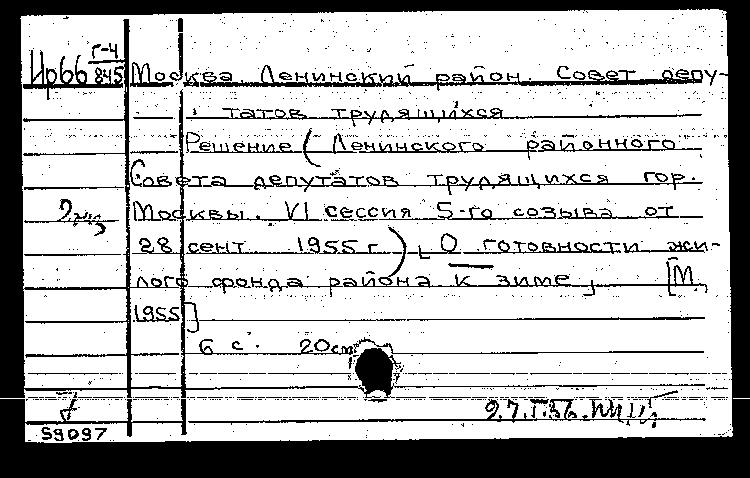 Ирбб Г-4/845 Москва. Ленинский район. Совет депу-
татов трудящихся
Решение (Ленинского районного
Совета депутатов трудящихся гор.
Москвы. VI сессия 5-го созыва от
28 сент. 1955 г.) [О готовности жи-
лого фонда района к зиме] [М.,
1955]
6 с. 20см
59097